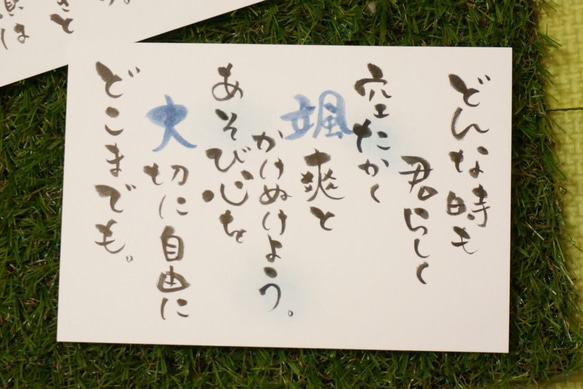 どんな時も
君らしく
空たかく
颯爽と
かけぬけよう。
あそび心を
大切に自由に
どこまでも。